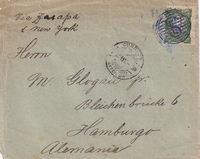 Via Zacapa
& New York
Herrn
M. Glogau jr.
Bleichenbrücke 6
Hamburgo
Alemania